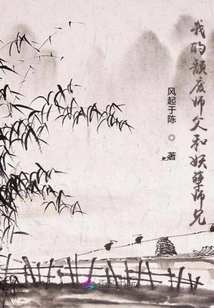 我的颓废师父和妖孽师兄
风起于陈 ◎ 著